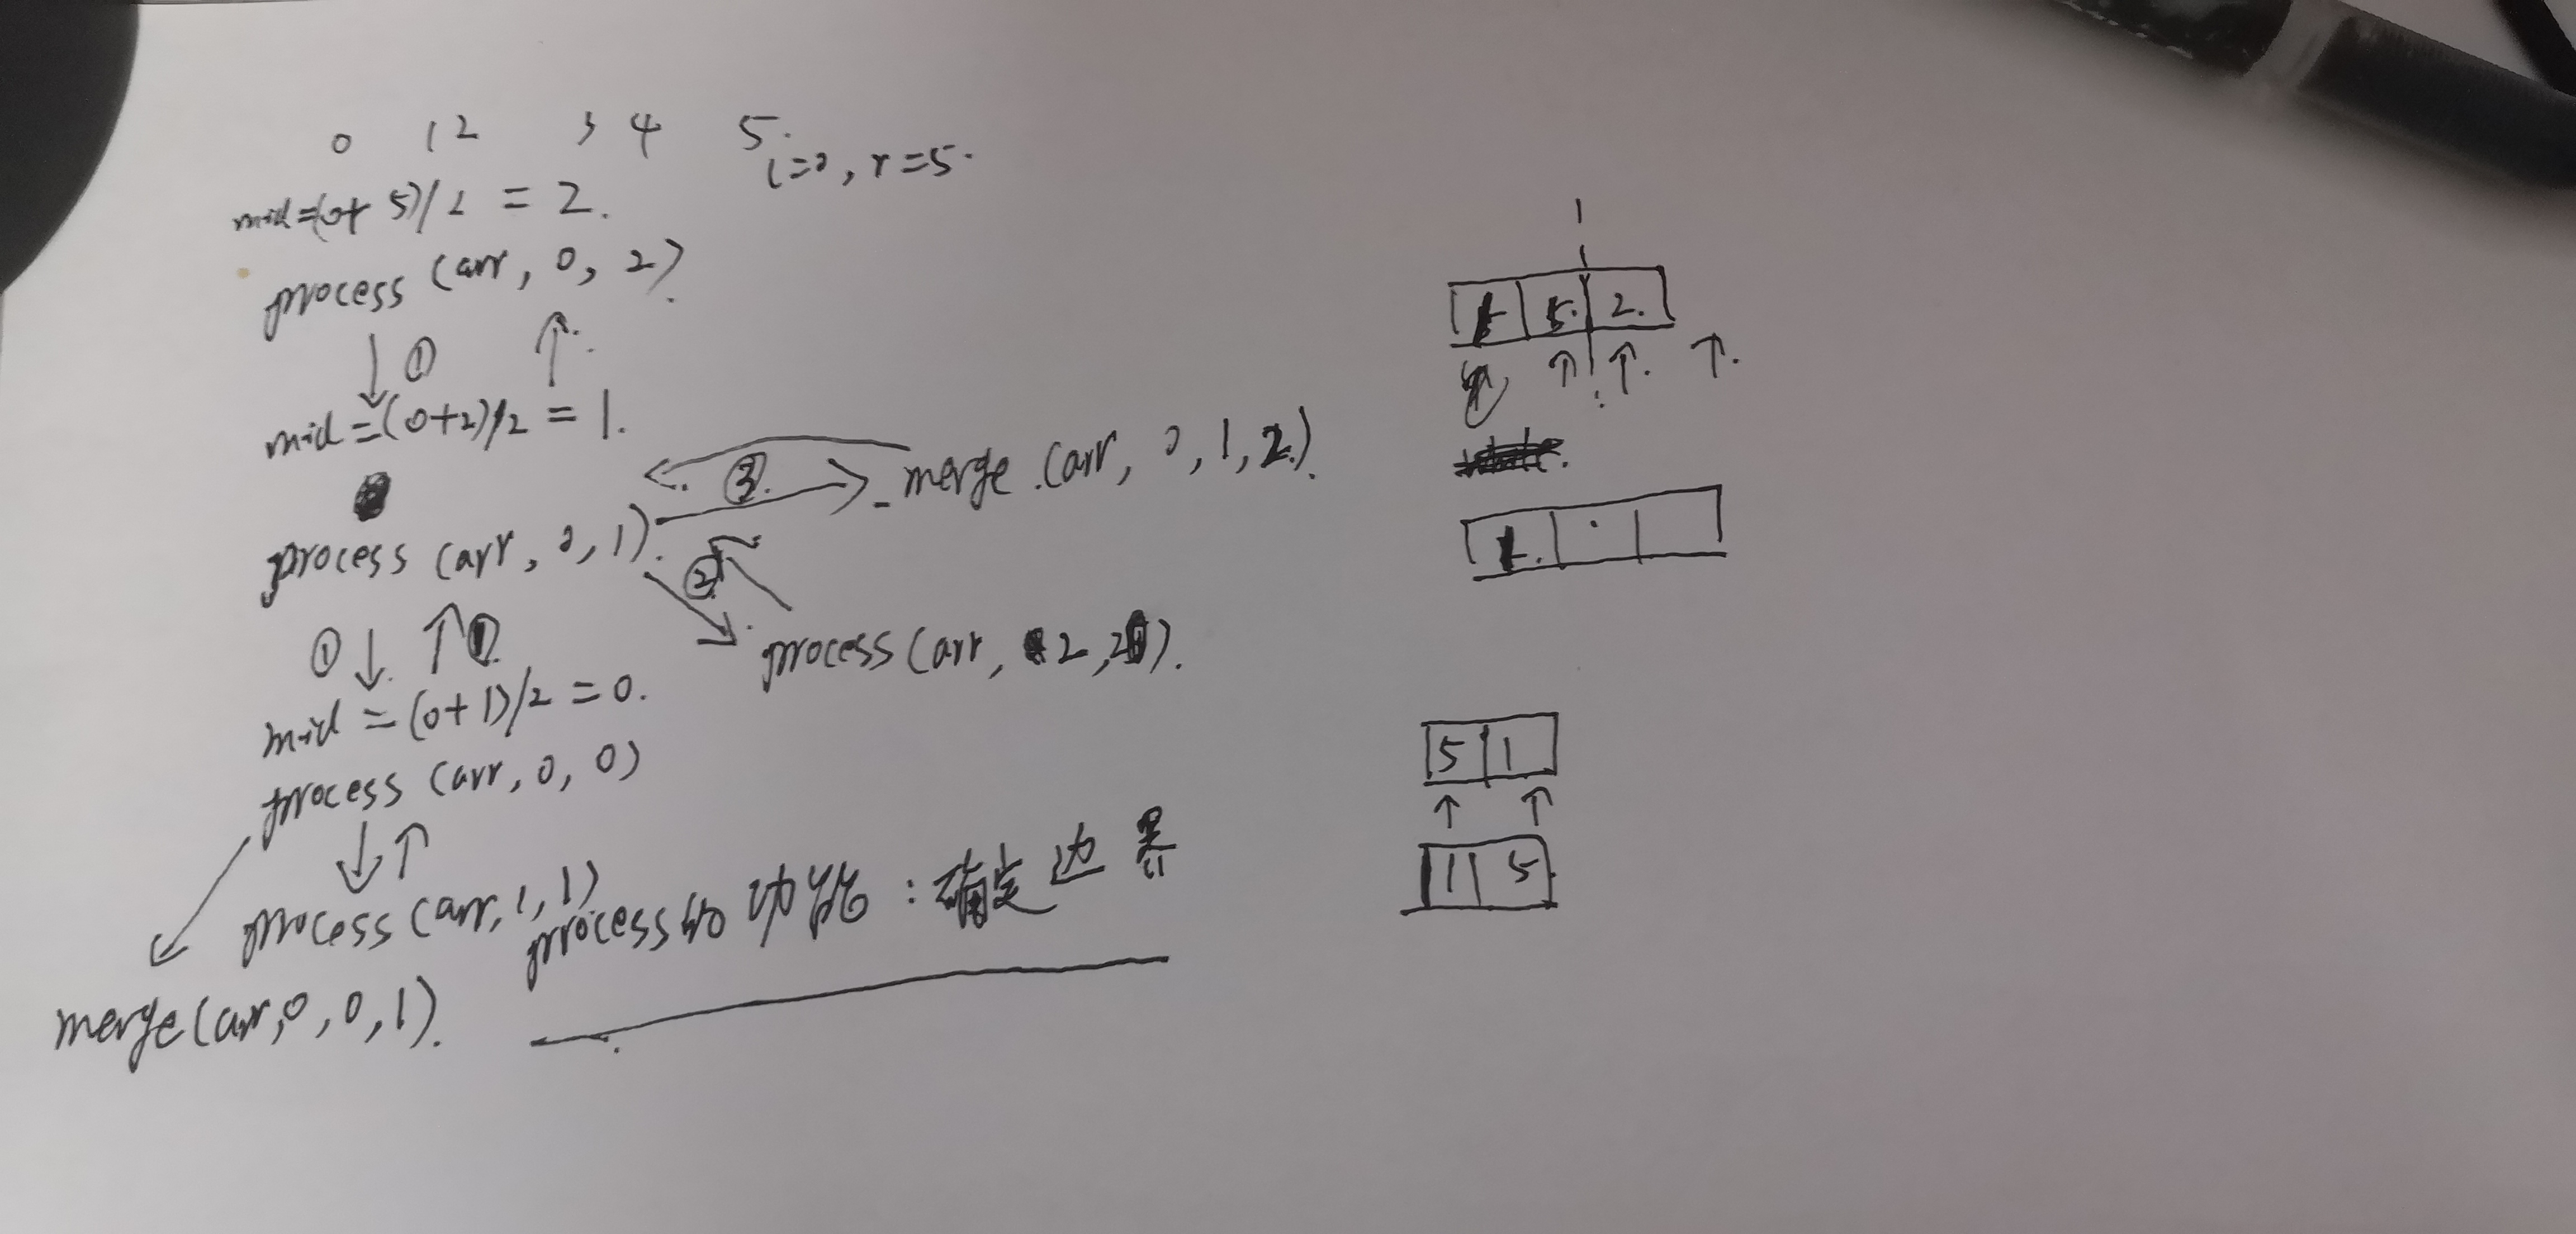 0 1 2 3 4 5.
l=0, r=5.
mid=(0+5)/2 = 2.
process (arr, 0, 2).
↓ ① ↑
mid=(0+2)/2 = 1.
③ merge (arr, 0, 1, 2).
process (arr, 0, 1).
②
process (arr, 2, 2).
① ↓ ↑
mid = (0+1)/2 = 0.
process (arr, 0, 0)
↓ ↑
process (arr, 1, 1)
process的功能：确定边界
merge(arr, 0, 0, 1).
1
1 5. 2.
↑ ↑ ↑.
1.
5 1
↑ ↑
1 5